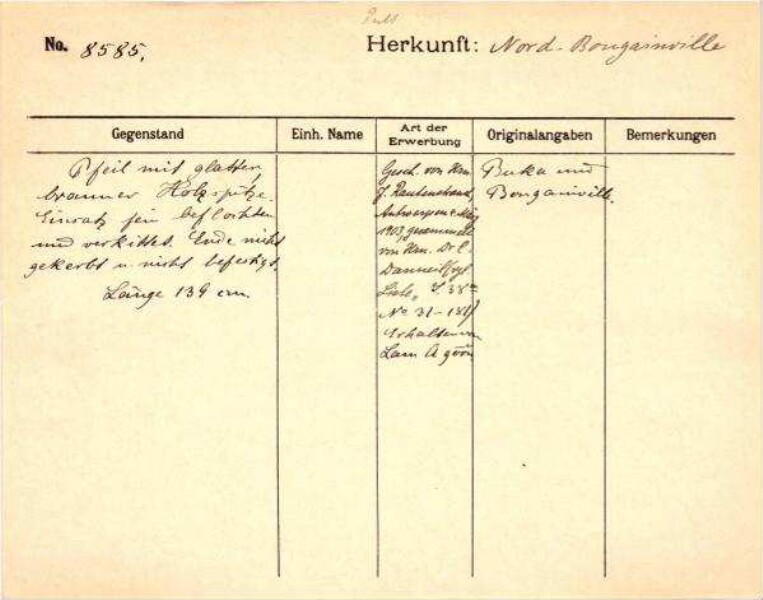 No. 8585.
Herkunft: Nord-Bougainville
Gegenstand
Einh. Name
Art der
Erwerbung
Originalangaben
Bemerkungen
Pfeil mit glatter,
brauner Holzspitze.
Einsatz fein beflochten
und verkittet. Ende nicht
gekerbt u. nicht befestigt.
Länge 139 cm.
Gesch. von Hrn.
J. Rautenstrauch,
Antwerpen
1903, gesammelt
von Hrn. Dr. C.
Danneil
Liste S. 38
No 31-
Erhalten von
Buka und
Bougainville.